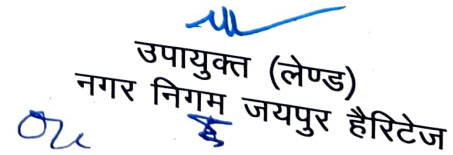 उपायुक्त (लेण्ड)
नगर निगम जयपुर हैरिटेज